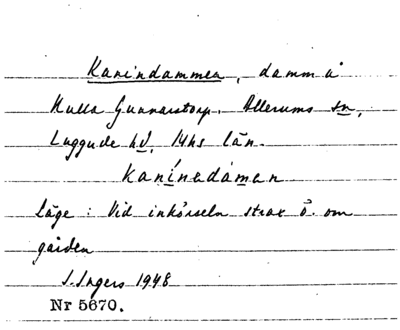 Kanindammen, damm å
Kulla Gunnarstorp. Allerums sn,
Luggude hd, Mhs län.
kanínadáman
Läge: Vid inkörseln strax ö. om
gården
I. Ingers 1948
Nr 5670.